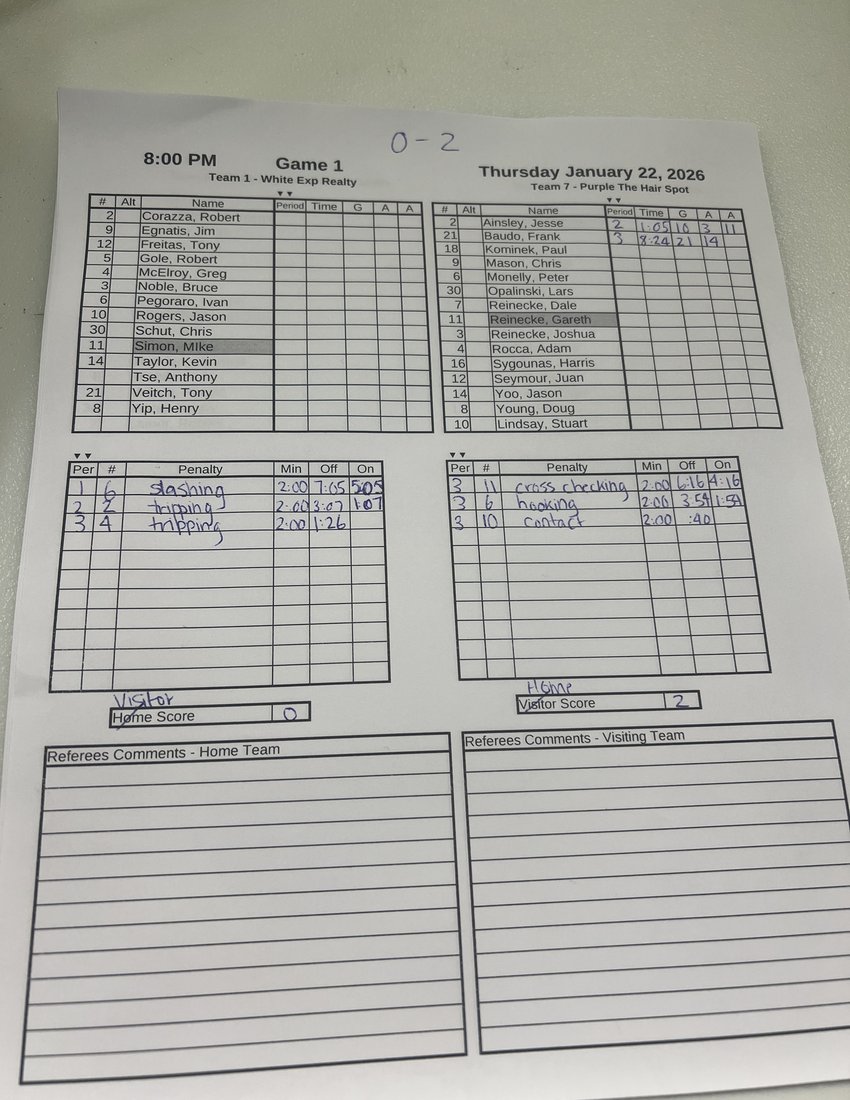 0-2
8:00 PM Game 1
Thursday January 22, 2026
Team 1 - White Exp Realty
Team 7 - Purple The Hair Spot
# Alt Name Period Time G A A
2 Corazza, Robert
9 Egnatis, Jim
12 Freitas, Tony
5 Gole, Robert
4 McElroy, Greg
3 Noble, Bruce
6 Pegoraro, Ivan
10 Rogers, Jason
30 Schut, Chris
11 Simon, MIke
14 Taylor, Kevin
Tse, Anthony
21 Veitch, Tony
8 Yip, Henry
# Alt Name Period Time G A A
2 Ainsley, Jesse 2 1:05 10 3 11
21 Baudo, Frank 3 8:24 21 14
18 Kominek, Paul
9 Mason, Chris
6 Monelly, Peter
30 Opalinski, Lars
7 Reinecke, Dale
11 Reinecke, Gareth
3 Reinecke, Joshua
4 Rocca, Adam
16 Sygounas, Harris
12 Seymour, Juan
14 Yoo, Jason
8 Young, Doug
10 Lindsay, Stuart
Per # Penalty Min Off On
1 6 slashing 2:00 7:05 5:05
2 2 tripping 2:00 3:07 1:07
3 4 tripping 2:00 1:26
Per # Penalty Min Off On
3 11 cross checking 2:00 6:16 4:16
3 6 hooking 2:00 3:54 1:54
3 10 contact 2:00 :40
Visitor
Home Score 0
Home
Visitor Score 2
Referees Comments - Home Team
Referees Comments - Visiting Team